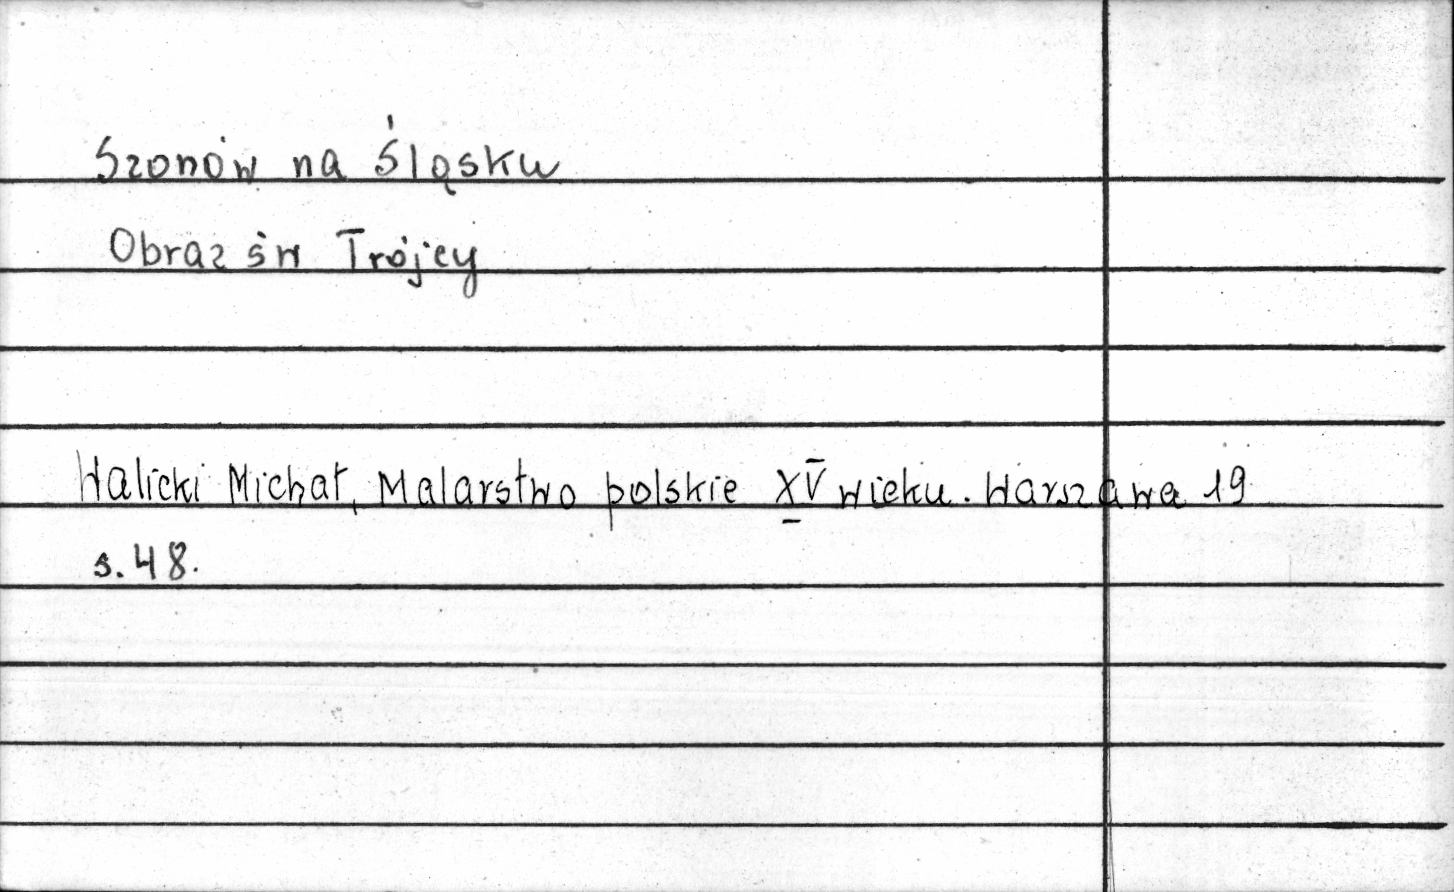 Szonów na Śląsku
Obraz św Trójcy
Walicki Michał, Malarstwo polskie XV wieku. Warszawa 19
s. 48.